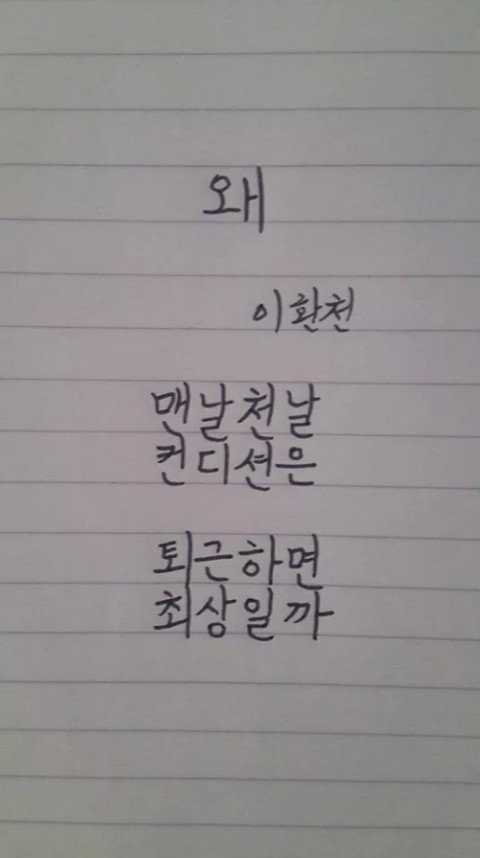 왜
이환천
맨날천날
컨디션은
퇴근하면
최상일까